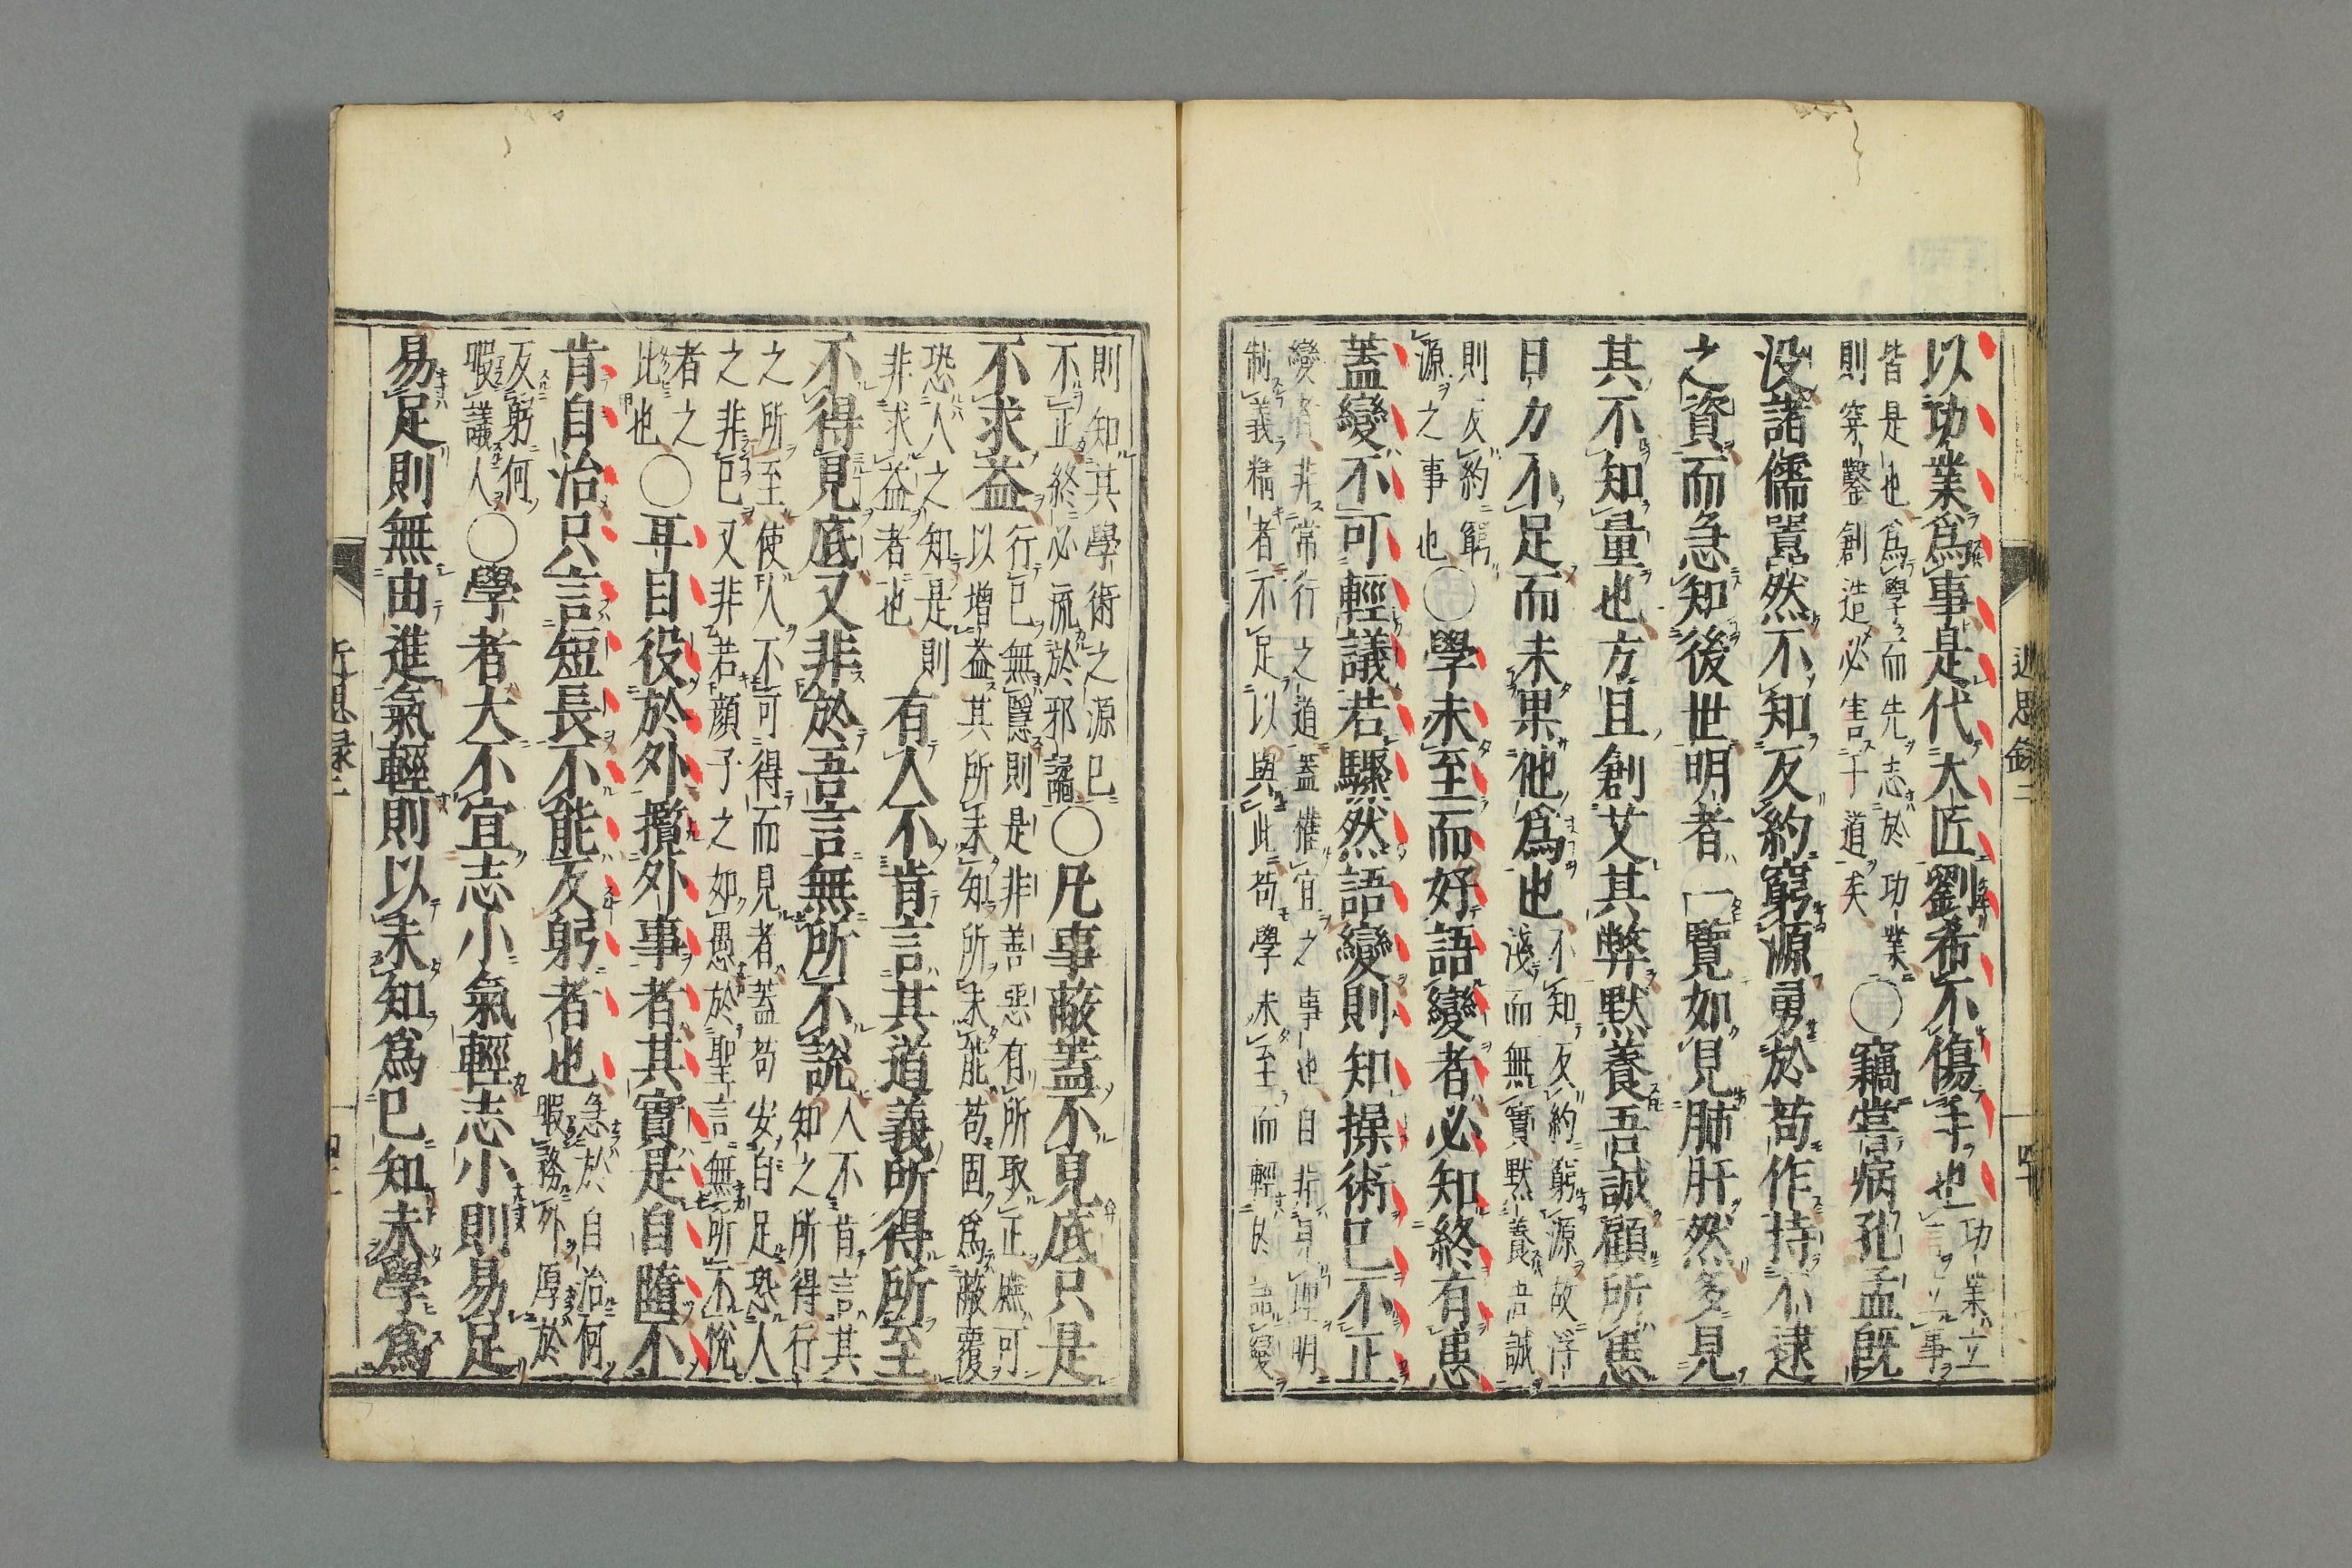 以功業爲事是代大匠劉希不傷手也
功業立
言立事
皆是也爲學而先志於功業
則穿鑿創造必害于道矣
○竊嘗病孔孟既
没諸儒嚚然不知反約窮源勇於苟作持不逮
之資而急知後世明者一覧如見肺肝然多見
其不知量也方且創艾其弊默養吾誠顧所患
日力不足而未果他爲也
不知反約窮源故浮
淺而無實默養吾誠
則反約窮
源之事也
○學未至而好語變者必知終有患
蓋變不可輕議若驟然語變則知操術已不正
變者非常行之道蓋権宜之事也自非見理明
制義精者不足以與此苟學未至而輕於語變
近思錄二
則知其學術之源已
不正終必流於邪譎
○凡事蔽蓋不見底只是
不求益
行已無隱則是非善惡有所取正庶可
以增益其所未知所未能苟固爲蔽覆
恐人之知是則
非求益者也
有人不肯言其道義所得所至
不得見底又非於吾言無所不說
人不肯言其
知之所得行
之所至使人不可得而見者蓋苟安自足恐人
之非已又非若顔子之如愚於聖言無所不悅
者之
比也
○耳目役於外攬外事者其實是自隨不
肯自治只言短長不能反躬者也
急於自治何
暇務外厚於
反躬何
暇議人
○學者大不宜志小氣輕志小則易足
易足則無由進氣輕則以未知爲已知未學爲
近思録二